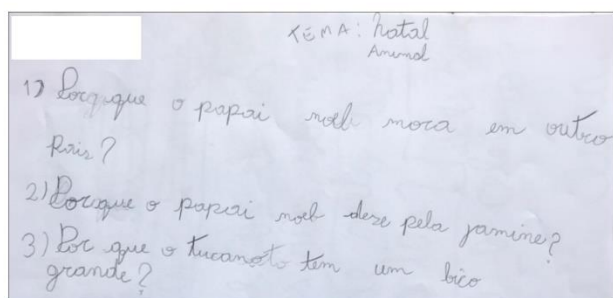 TEMA: Natal
Animal
1) Porq que o papai noel mora em outro
Pais?
2) Porque o papai noel deze pela jamine?
3) Por que o tucanoto tem um bico
grande?